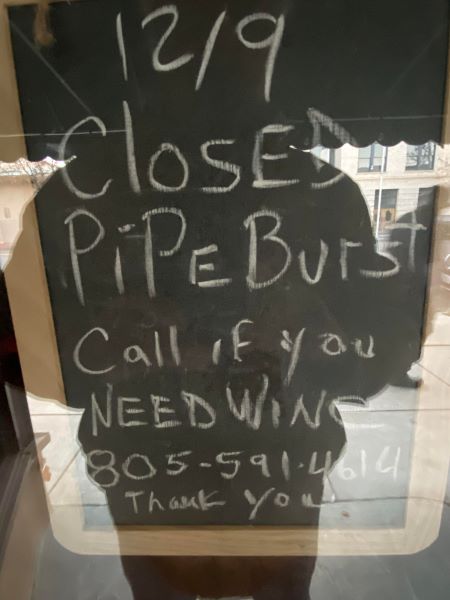 12/9
Closed
PiPe Burst
Call if you
NEED WiNE
805-591-4614
Thank you